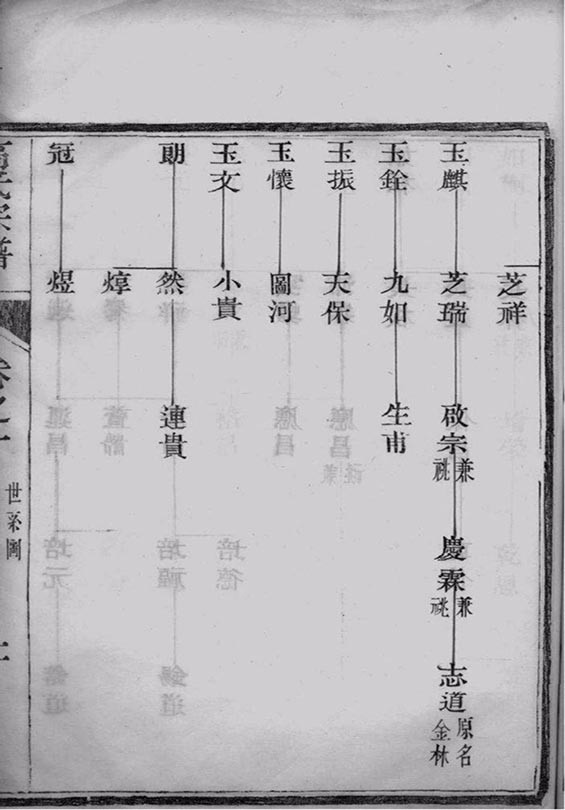 芝祥
玉麒
芝瑞
啟宗兼祧
慶霖兼祧
志道原名金林
玉銓
九如
生甫
玉振
天保
玉懷
圖河
玉文
小貴
朗
然
連貴
焞
冠
煜
氏宗譜
卷之一
世系圖